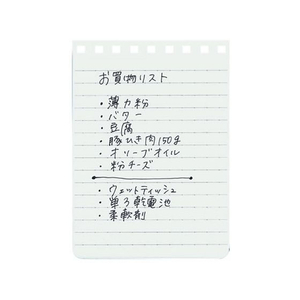 お買物リスト
・薄力粉
・バター
・豆腐
・豚ひき肉150g
・オリーブオイル
・粉チーズ
・ウェットティッシュ
・単3乾電池
・柔軟剤